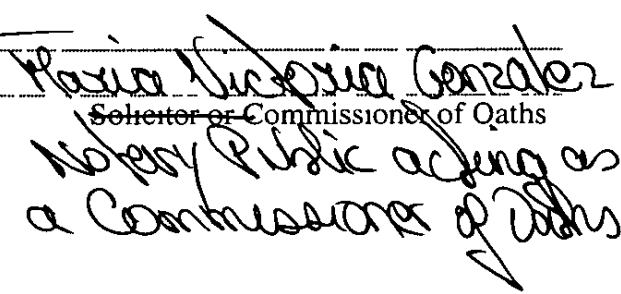 Maria Victoria Gonzalez
Solicitor or Commissioner of Oaths
Notary Public acting as
a Commissioner of Oaths